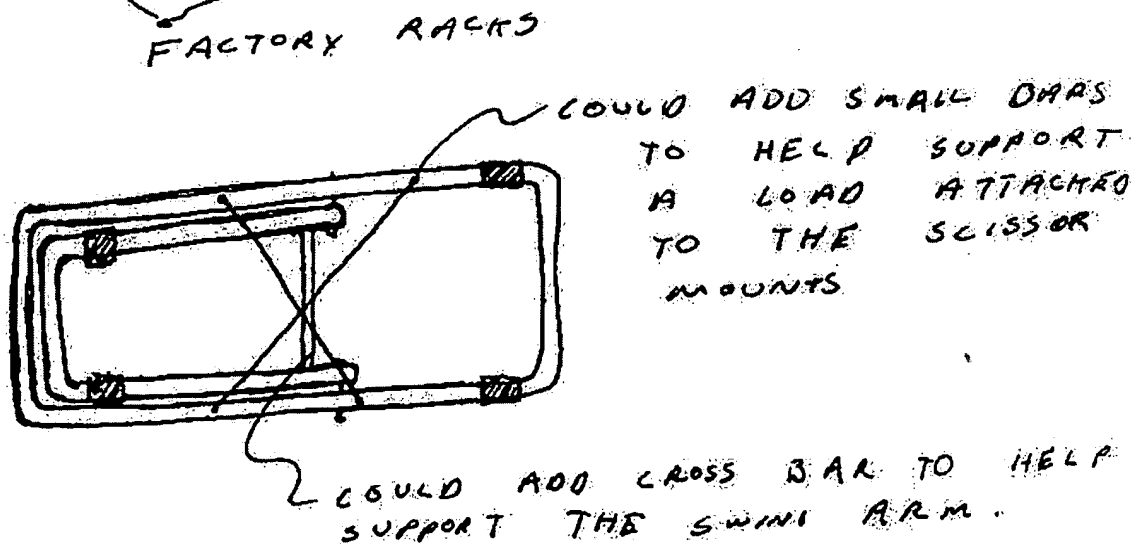 FACTORY RACKS
COULD ADD SMALL BARS
TO HELP SUPPORT
A LOAD ATTACHED
TO THE SCISSOR
MOUNTS
COULD ADD CROSS BAR TO HELP
SUPPORT THE SWING ARM.